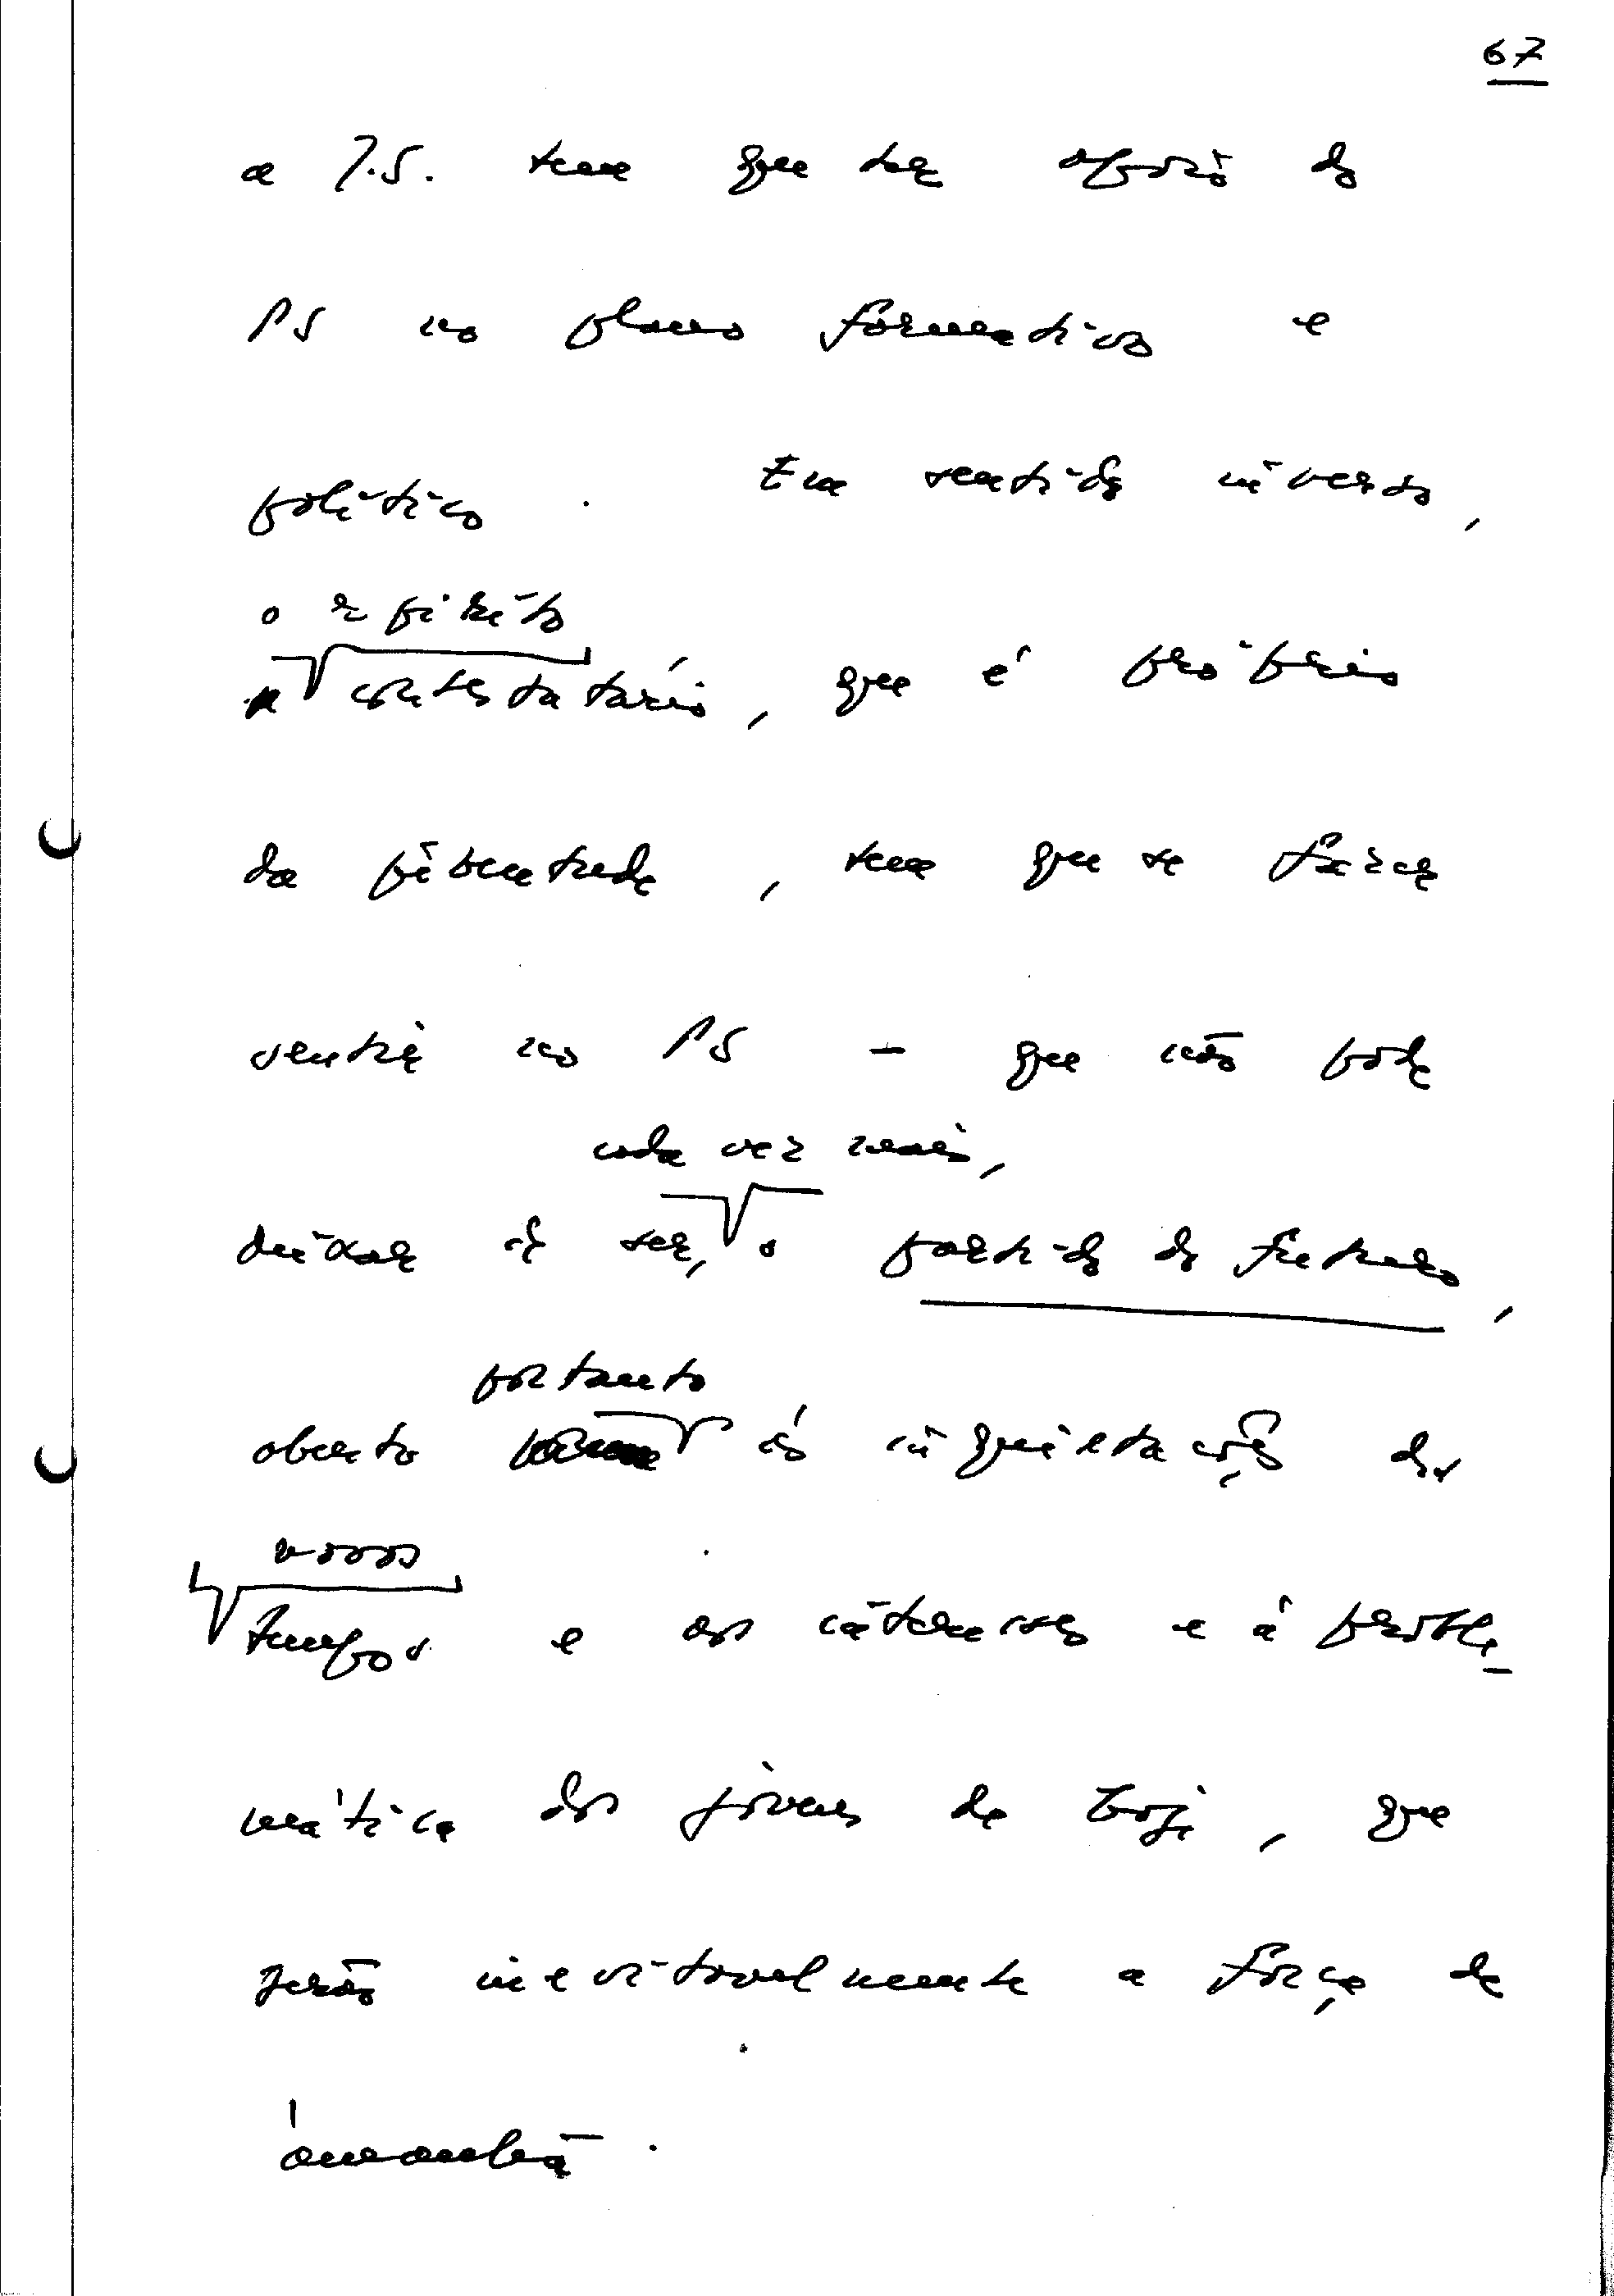 67
a J.S. tem que ter apoio do
PS no plano formativo e
político. Em sentido inverso,
o espírito
contestatário, que é próprio
da juventude, tem que se fazer
sentir no PS - que não pode
cada vez mais,
deixar de ser, o partido do futuro,
portanto
aberto às inquietações dos
novos
tempos e aos interesses e à proble-
mática dos jovens de hoje, que
serão inevitavelmente a força de
amanhã.